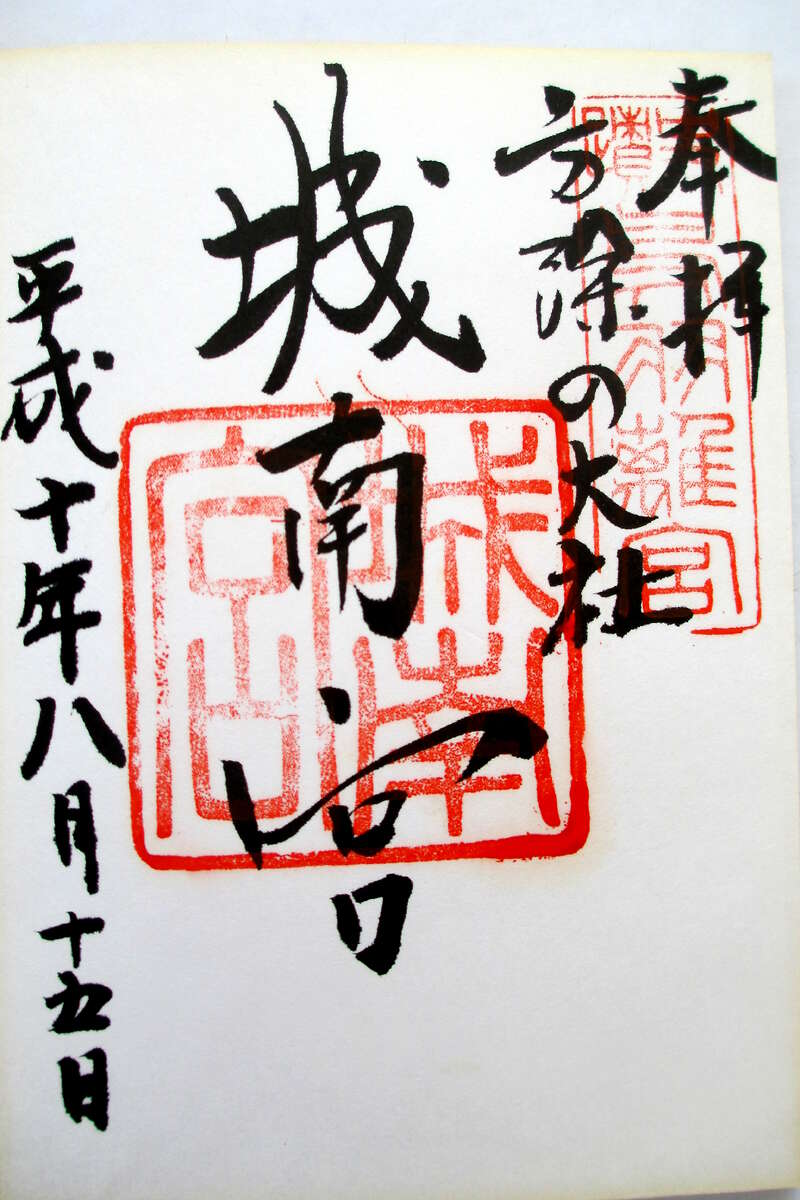 奉拝
方除の大社
城南宮
平成十年八月十五日
城南宮